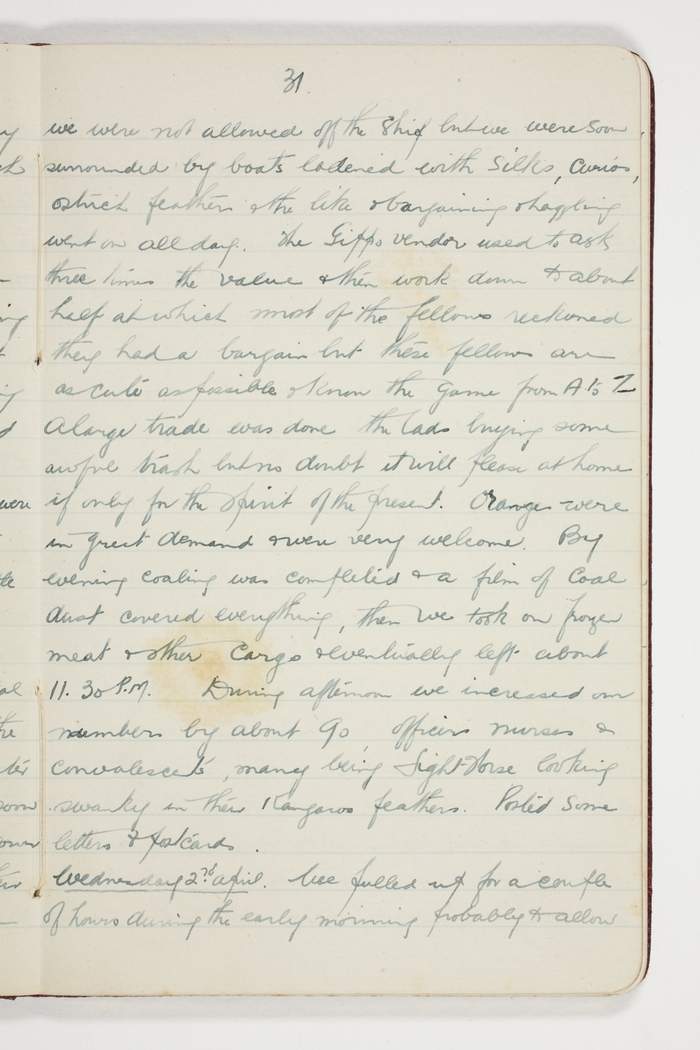 31.
we were not allowed off the Ship but we were soon
surrounded by boats ladened with Silks, Curios,
ostrich feathers & the like & bargaining & haggling
went on all day. The Gippo vendor used to ask
three times the value & then work down to about
half at which most of the fellows reckoned
they had a bargain but these fellows are
as cute as possible & know the game from A to Z
A large trade was done the lads buying some
awful trash but no doubt it will please at home
if only for the spirit of the present. Oranges were
in great demand & were very welcome. By
evening coaling was completed & a film of Coal
dust covered everything, then we took on frozen
meat & other Cargo & eventually left about
11.30 P.M. During afternoon we increased our
numbers by about 90 officers nurses &
convalescents, many being Light Horse looking
swanky in their Kangaroo feathers. Posted some
letters & postcards.
Wednesday 2nd April. We pulled up for a couple
of hours during the early morning probably to allow